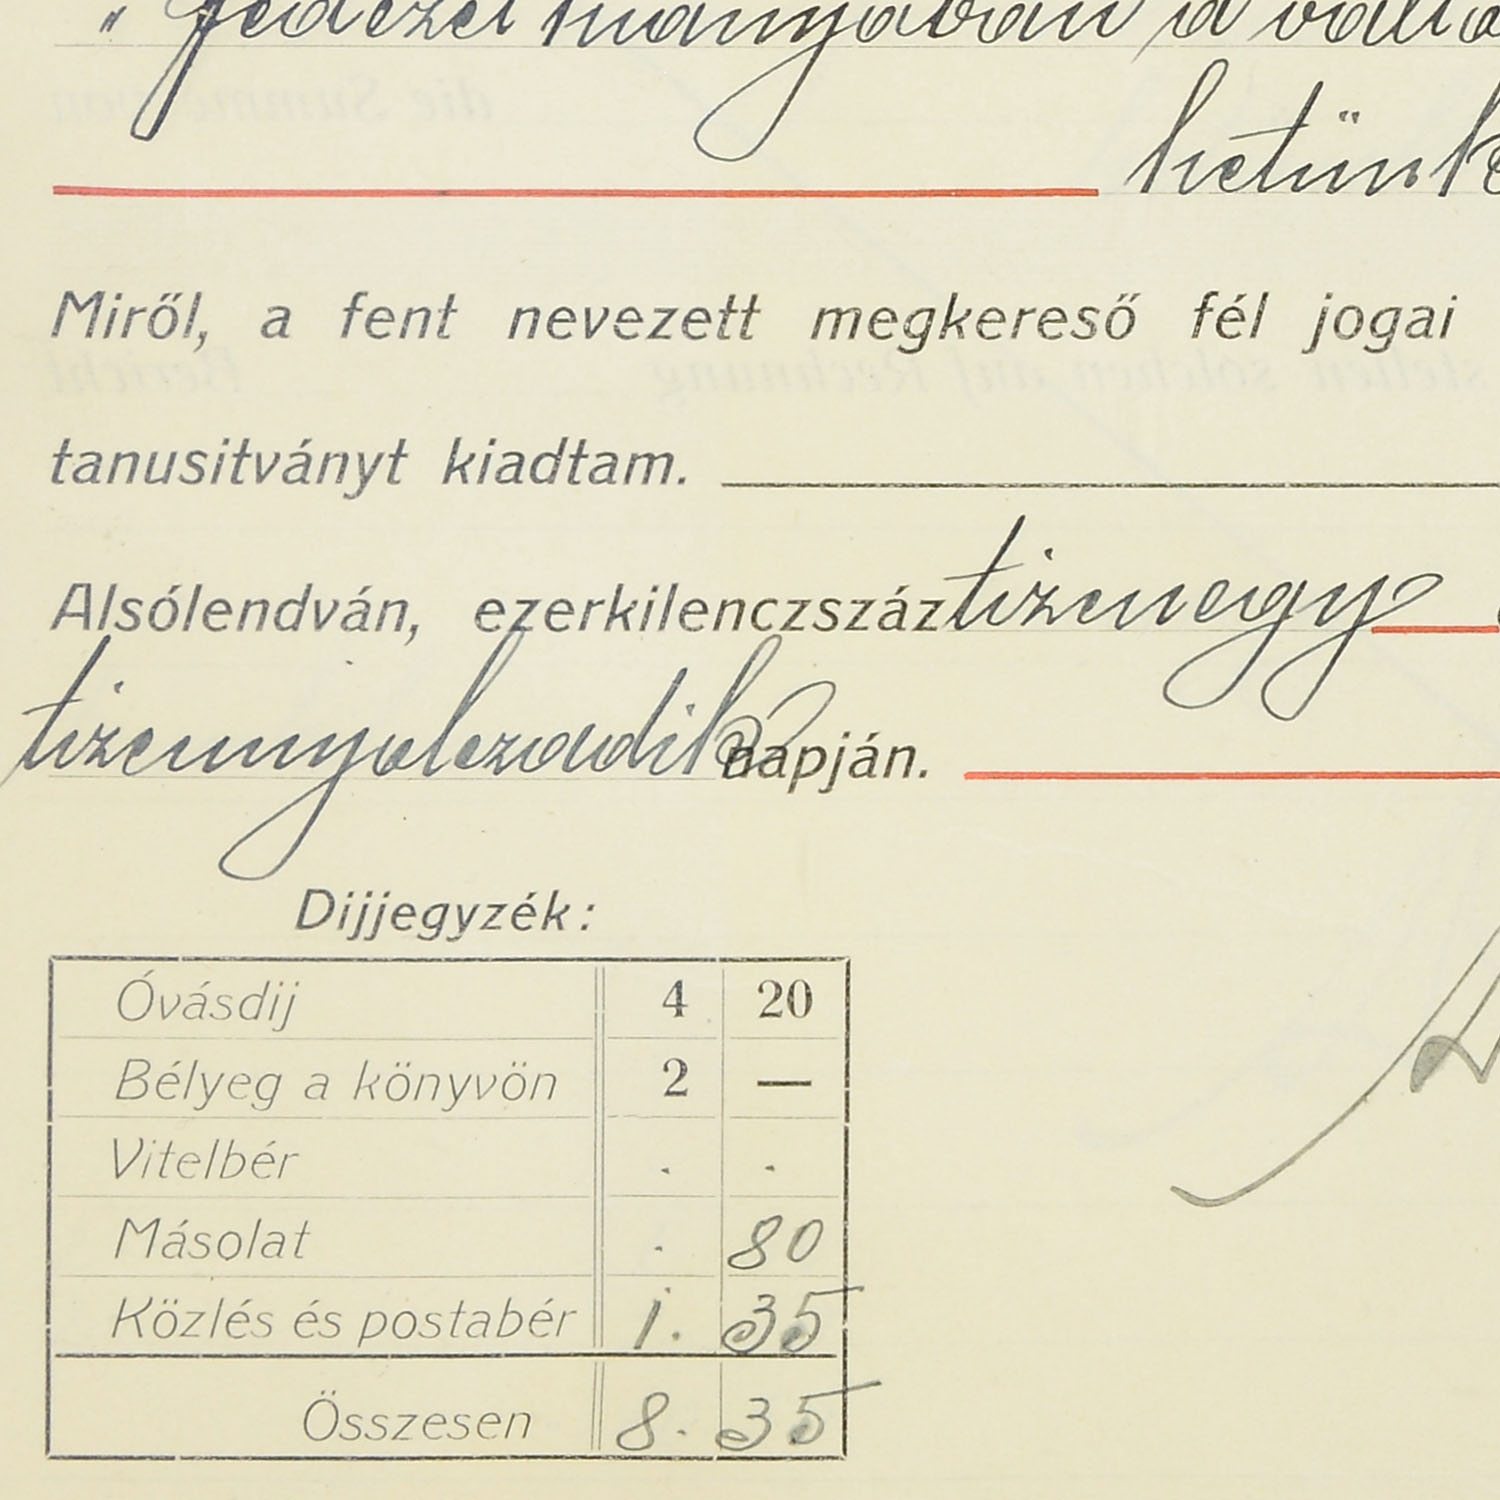 " fedezet hiányában a váltó
hetünk
Miről, a fent nevezett megkereső fél jogai
tanusitványt kiadtam.
Alsólendván, ezerkilenczszáz tizenegy
tizennyolczadik napján.
Dijjegyzék:
Óvásdij 4 20
Bélyeg a könyvön 2 —
Vitelbér . .
Másolat . 80
Közlés és postabér 1. 35
Összesen 8. 35